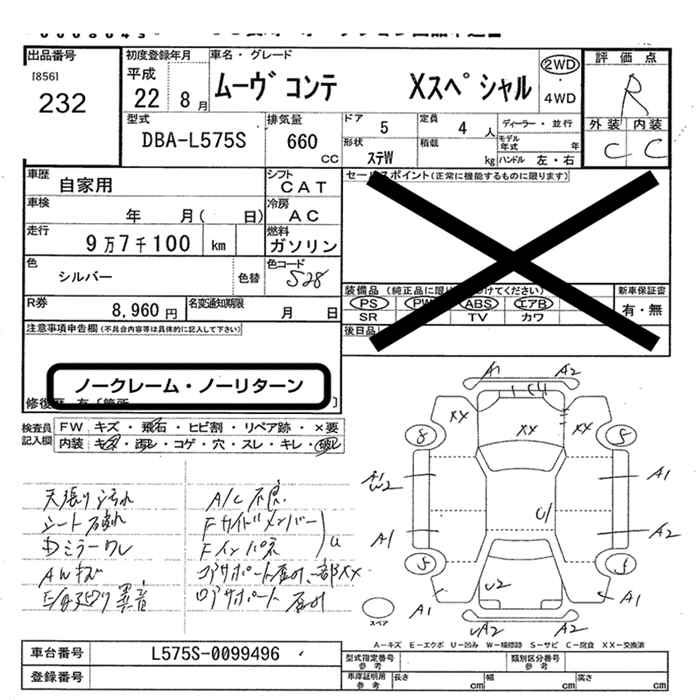 出品番号
[856]
232
初度登録年月
平成
22年 8月
車名・グレード
ムーヴコンテ Xスペシャル
2WD
・
4WD
評価点
R
外装 内装
C C
型式
DBA-L575S
排気量
660
CC
ドア
5
定員
4人
ディーラー・並行
モデル年式 年
形状
ステW
積載
kg
ハンドル 左・右
車歴
自家用
シフト
CAT
車検
年 月( 日)
冷房
AC
走行
9万7千100 km
燃料
ガソリン
色
シルバー
色替
色コード
S28
R券
8,960円
名変通知期限
月 日
セールスポイント(正常に機能するものに限ります)
装備品
PS PW ABS エアB
SR TV カワ
新車保証書
有・無
後日品
注意事項申告欄(不具合内容等は具体的に記入して下さい)
ノークレーム・ノーリターン
修復歴
検査員記入欄
FW キズ・飛石・ヒビ割・リペア跡・×要
内装 キズ・汚レ・コゲ・穴・スレ・キレ・破レ
天張り汚れ
シート破れ
Dミラーワレ
AWキズ
A/C不良
Fサイドメンバー
Fインパネ
U
コアサポート
A1 A2
XX XX XX
8 5
A1 A1
U2
A1 U1 A2
5 5
U2
A1 A1
UA2 A2
スペア
A-キズ E-エクボ U-凹み W-補修跡 S-サビ C-腐食 XX-交換済
車台番号
L575S-0099496
登録番号
型式指定番号
参考
類別区分番号
参考
車庫証明用
参考
長さ cm
幅 cm
高さ cm